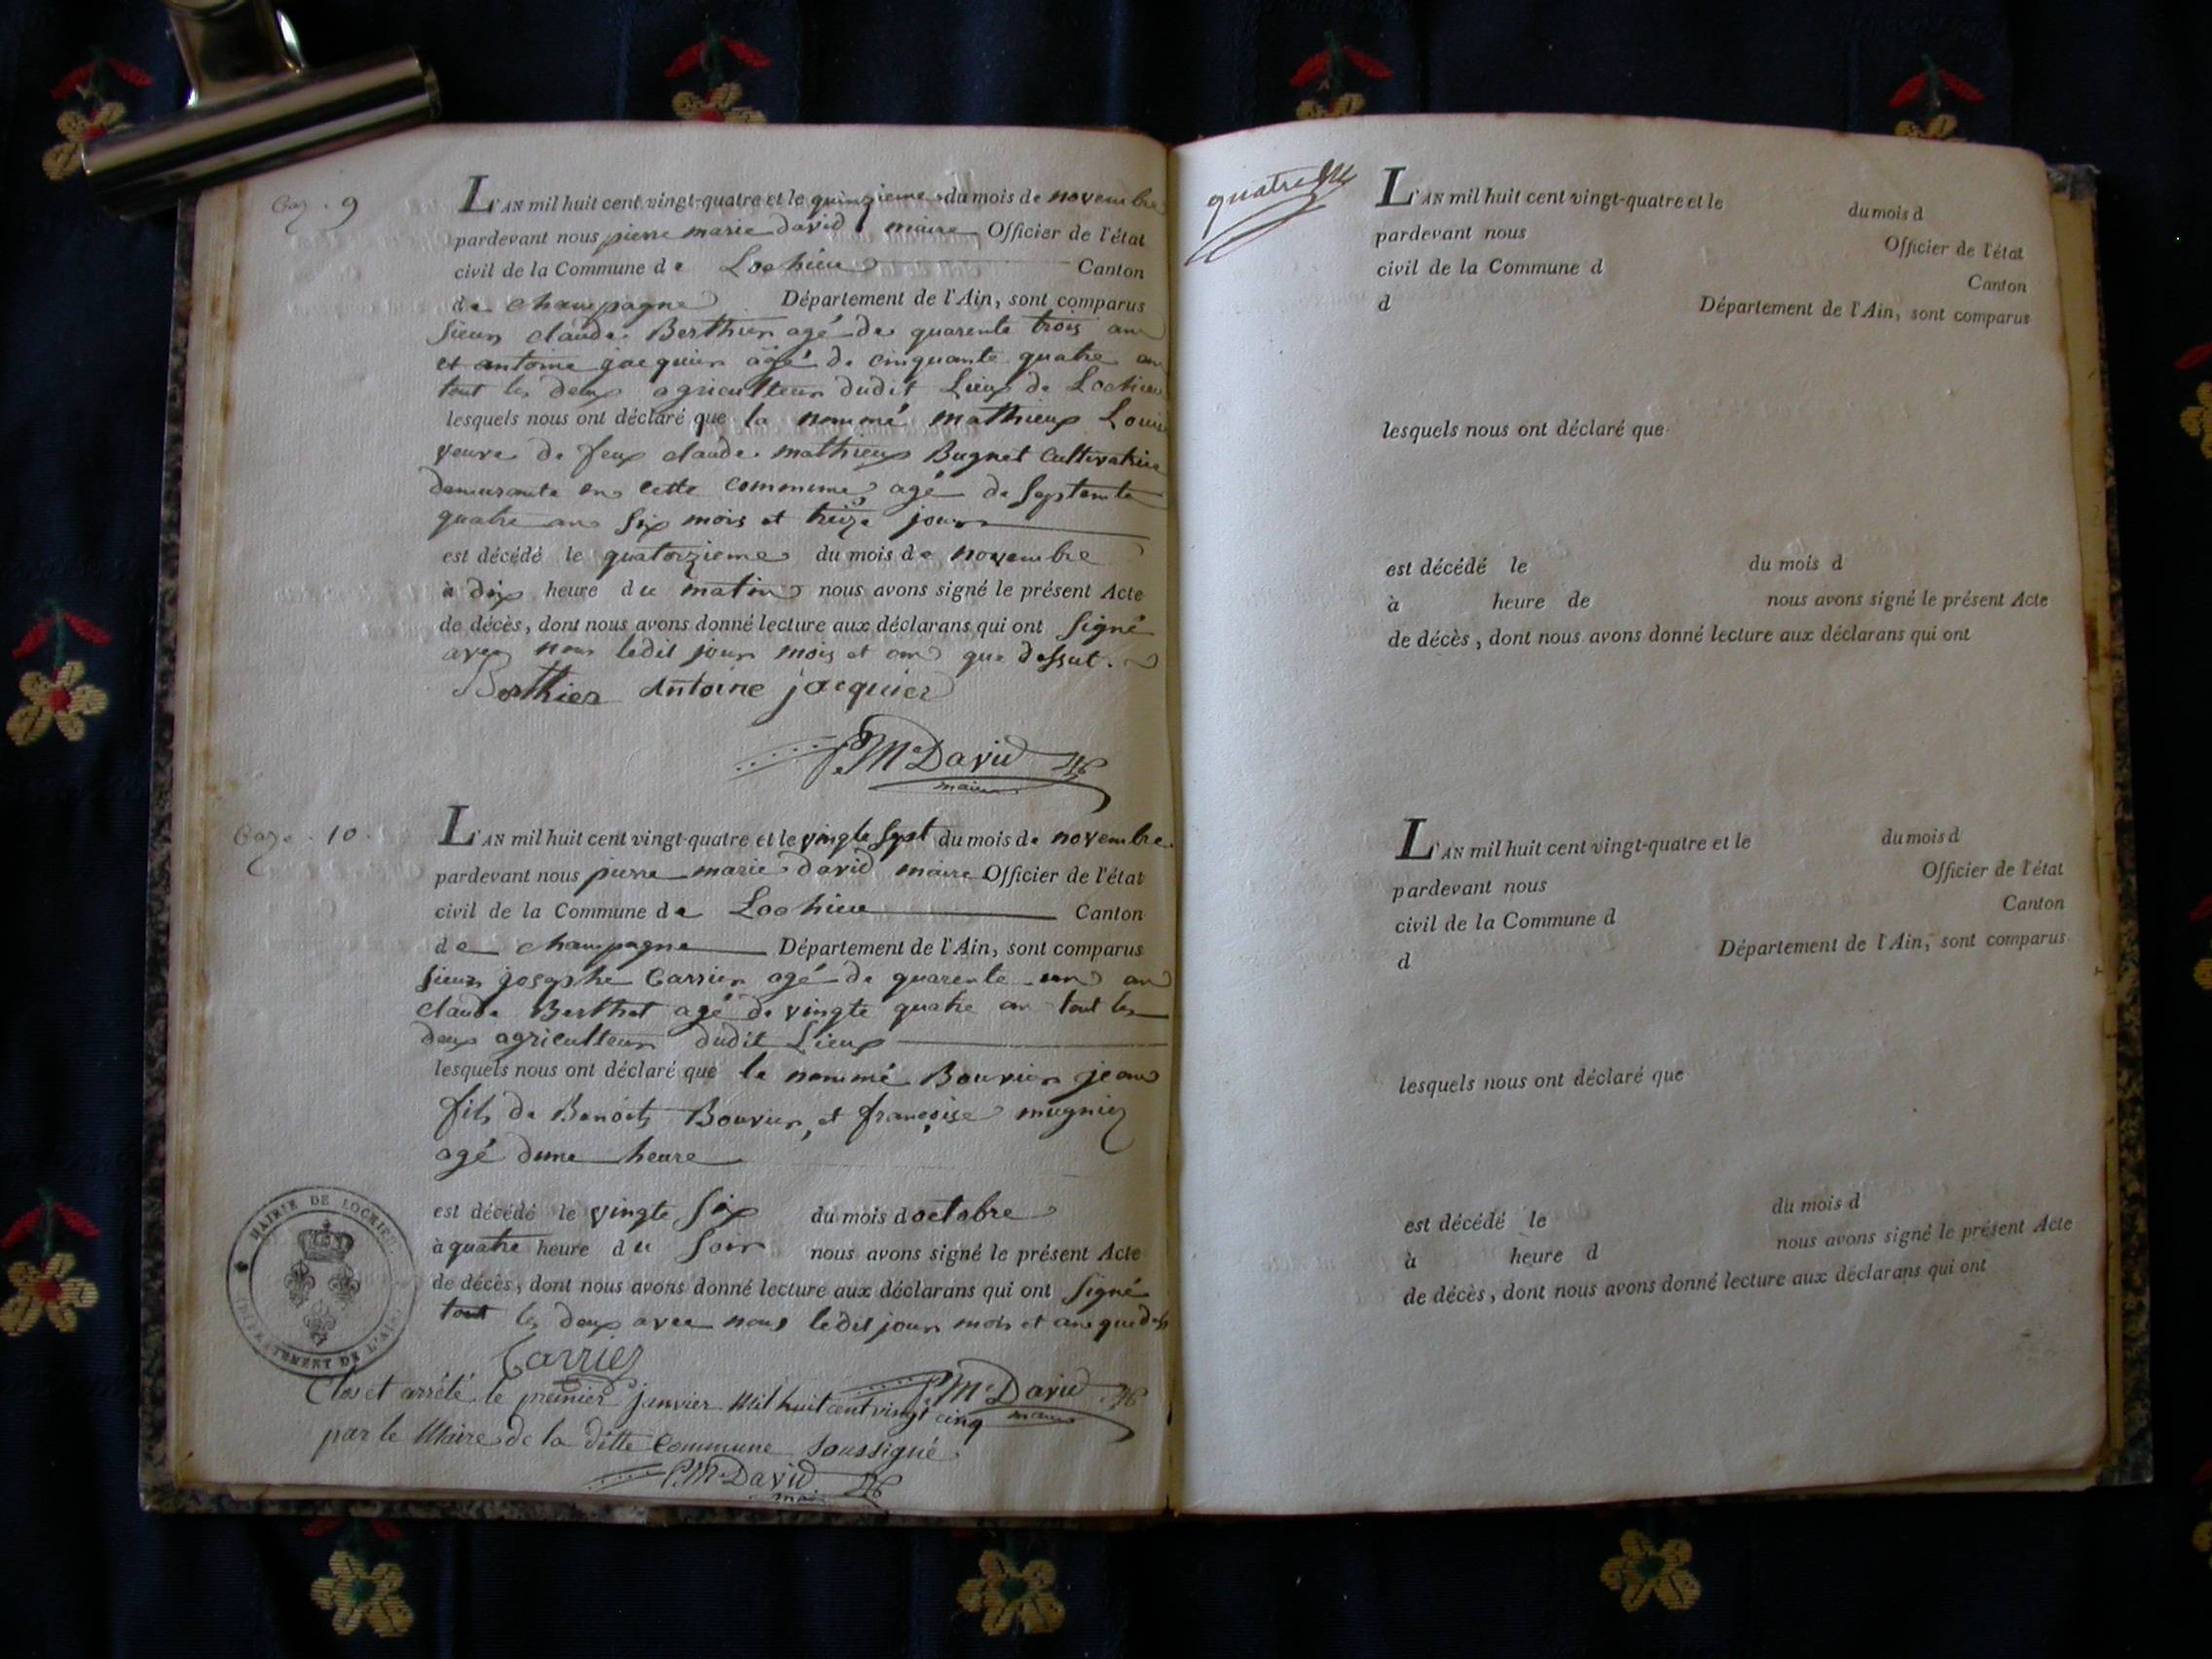 9
L'AN mil huit cent vingt-quatre et le quinzieme du mois de novembre
pardevant nous pierre marie david maire Officier de l'état
civil de la Commune de Lochieu Canton
de champagne Département de l'Ain, sont comparus
sieur claude Berthier agé de quarente trois an
et antoine jacquier agé de cinquante quatre an
tout les deux agriculteur dudit Lieux de Lochieu
lesquels nous ont déclaré que la nommé mathieux Louise
veuve de feux claude mathieux Bugnet Cultivatrice
demeurante en cette commune agé de septente
quatre an six mois et treize jours
est décédé le quatorzieme du mois de novembre
à dix heure du matin nous avons signé le présent Acte
de décès, dont nous avons donné lecture aux déclarans qui ont signé
avec nous ledit jour mois et an que dessut.
Berthier Antoine jacquier
P. Me David
maire
10
L'AN mil huit cent vingt-quatre et le vingte sept du mois de novembre
pardevant nous pierre marie david maire Officier de l'état
civil de la Commune de Lochieu Canton
de champagne Département de l'Ain, sont comparus
sieur josephe Carrier agé de quarente un an
claude Berthet agé de vingte quatre an tout les
deux agriculteur dudit Lieux
lesquels nous ont déclaré que le nommé Bouvier jean
fils de Benoit Bouvier, et françoise mugnier
agé dune heure
est décédé le vingte six du mois d octobre
à quatre heure du soir nous avons signé le présent Acte
de décès, dont nous avons donné lecture aux déclarans qui ont signé
tout les deux avec nous ledit jour mois et an que dess
Carrier
P. Me David
maire
Clos et arrêté le premier janvier Mil huit cent vingt cinq
par le Maire de la ditte Commune soussigné
P. Me David
maire
MAIRIE DE LOCHIEU
DÉPARTEMENT DE L'AIN
quatre
L'AN mil huit cent vingt-quatre et le du mois d
pardevant nous Officier de l'état
civil de la Commune d Canton
d Département de l'Ain, sont comparus
lesquels nous ont déclaré que
est décédé le du mois d
à heure de nous avons signé le présent Acte
de décès, dont nous avons donné lecture aux déclarans qui ont
L'AN mil huit cent vingt-quatre et le du mois d
pardevant nous Officier de l'état
civil de la Commune d Canton
d Département de l'Ain, sont comparus
lesquels nous ont déclaré que
est décédé le du mois d
à heure d nous avons signé le présent Acte
de décès, dont nous avons donné lecture aux déclarans qui ont